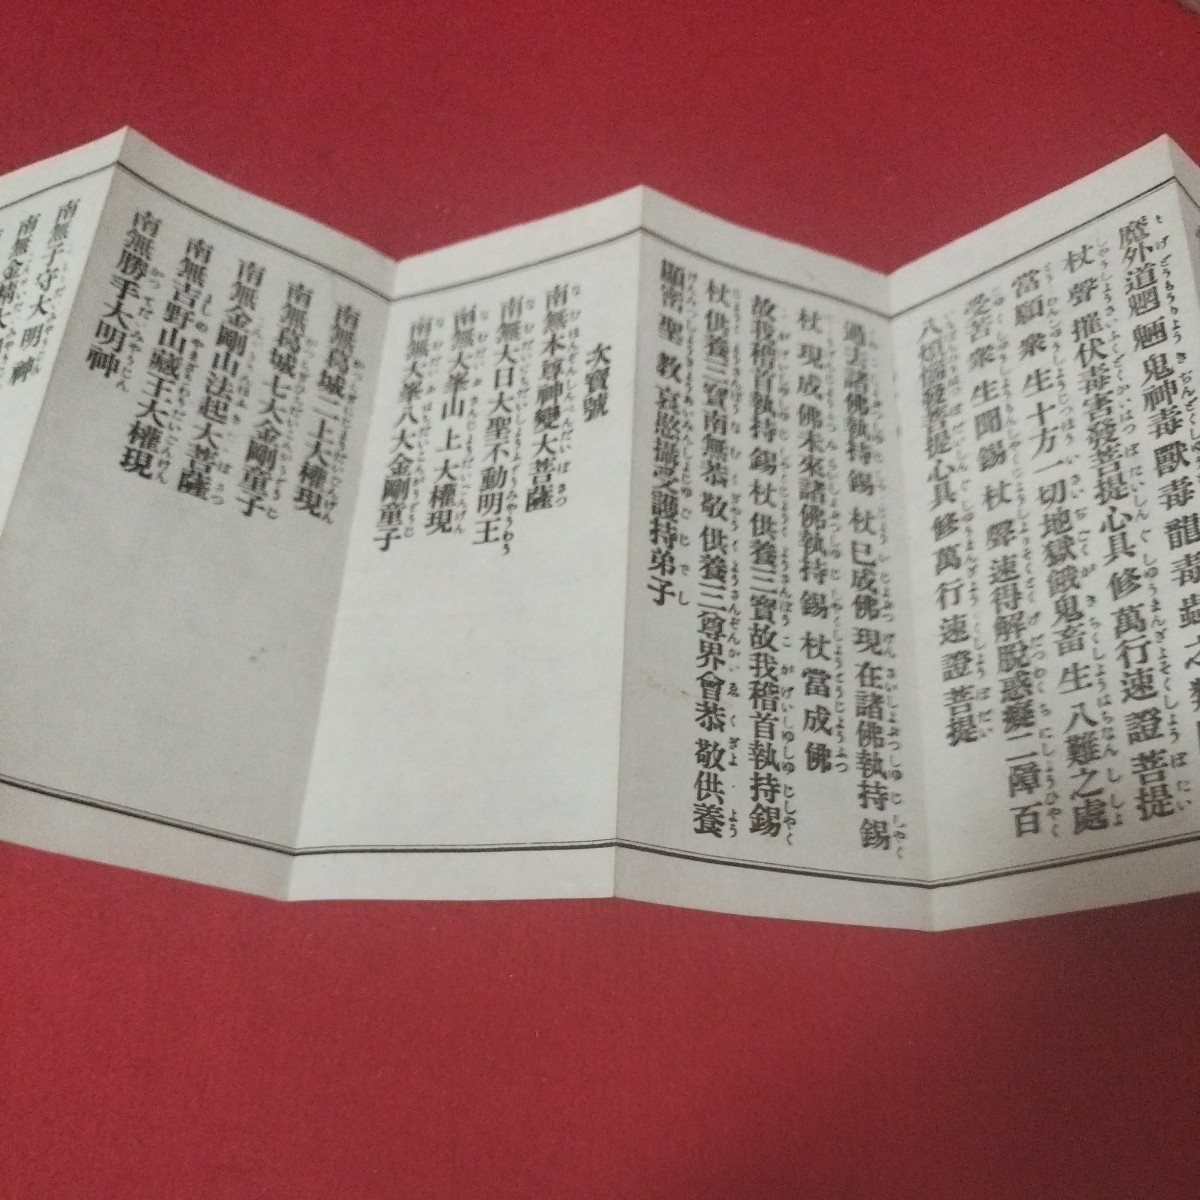 魔外道魍魎鬼神毒獸毒龍毒蟲之類
杖聲摧伏毒害發菩提心具修萬行速證菩提
當願衆生十方一切地獄餓鬼畜生八難之處
受苦衆生聞錫杖聲速得解脫惑癡二障百
八煩惱發菩提心具修萬行速證菩提
過去諸佛執持錫杖已成佛現在諸佛執持錫
杖現成佛未來諸佛執持錫杖當成佛
故我稽首執持錫杖供養三寶故我稽首執持錫
杖供養三寶南無恭敬供養三尊界會恭敬供養
顯密聖教哀愍攝受護持弟子
次寶號
南無本尊神變大菩薩
南無大日大聖不動明王
南無大峯山上大權現
南無大峯八大金剛童子
南無葛城二上大權現
南無葛城七大金剛童子
南無金剛山法起大菩薩
南無吉野山藏王大權現
南無勝手大明神
南無子守大明神
南無金精大